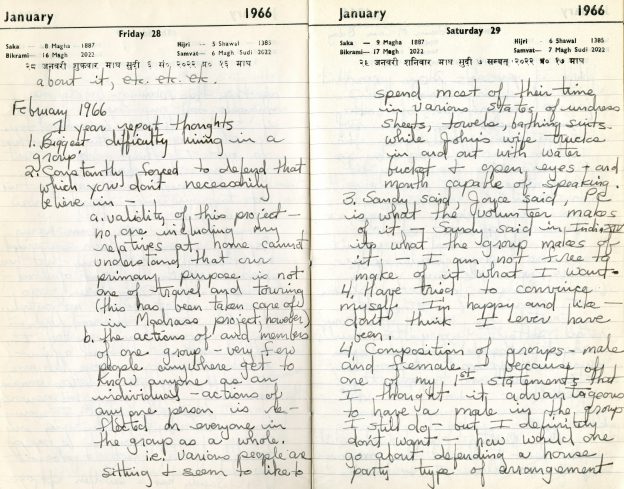 January 1966
Friday 28
Saka — 8 Magha 1887 Hijri - 5 Shawal 1385
Bikrami — 16 Magh 2022 Samvat- 6 Magh Sudi 2022
२८ जनवरी शुक्रवार माघ सुदी ६ सं. २०२२ प्र० १६ माघ
about it, etc. etc. etc.
February 1966
1 year report thoughts
1. Biggest difficulty living in a
group.
2. Constantly forced to defend that
which you don't necessarily
believe in –
a. validity of this project –
no one including my
relatives at home cannot
understand that our
primary purpose is not
one of travel and touring
(this has been taken care of
in Madrass project, however)
b. the actions of and members
of one group – very few
people anywhere get to
know anyone as an
individual – actions of
any one person is re-
flected on everyone in
the group as a whole.
i.e. various people are
sitting & seem to like to
January 1966
Saturday 29
Saka — 9 Magha 1887 Hijri - 6 Shawal 1385
Bikrami— 17 Magh 2022 Samvat- 7 Magh Sudi 2022
२९ जनवरी शनिवार माघ सुदी ७ सम्वत् २०२२ प्र० १७ माघ
spend most of their time
in various states of undress
sheets, towels, bathing suits.
while John's wife trucks
in and out with water
bucket & open eyes & and
mouth capable of speaking.
3. Sandy said, Joyce said, PC
is what the volunteer makes
of it – Sandy said in India IV
its what the group makes of
it, – I am not free to
make of it what I want.
4. Have tried to convince
myself I'm happy and like –
don't think I ever have
been.
4. Composition of groups – male
and female. because of
one of my 1st statements that
I thought it advantageous
to have a male in the group
I still do – but I definitely
don't want – how would one
go about defending a house
party type of arrangement